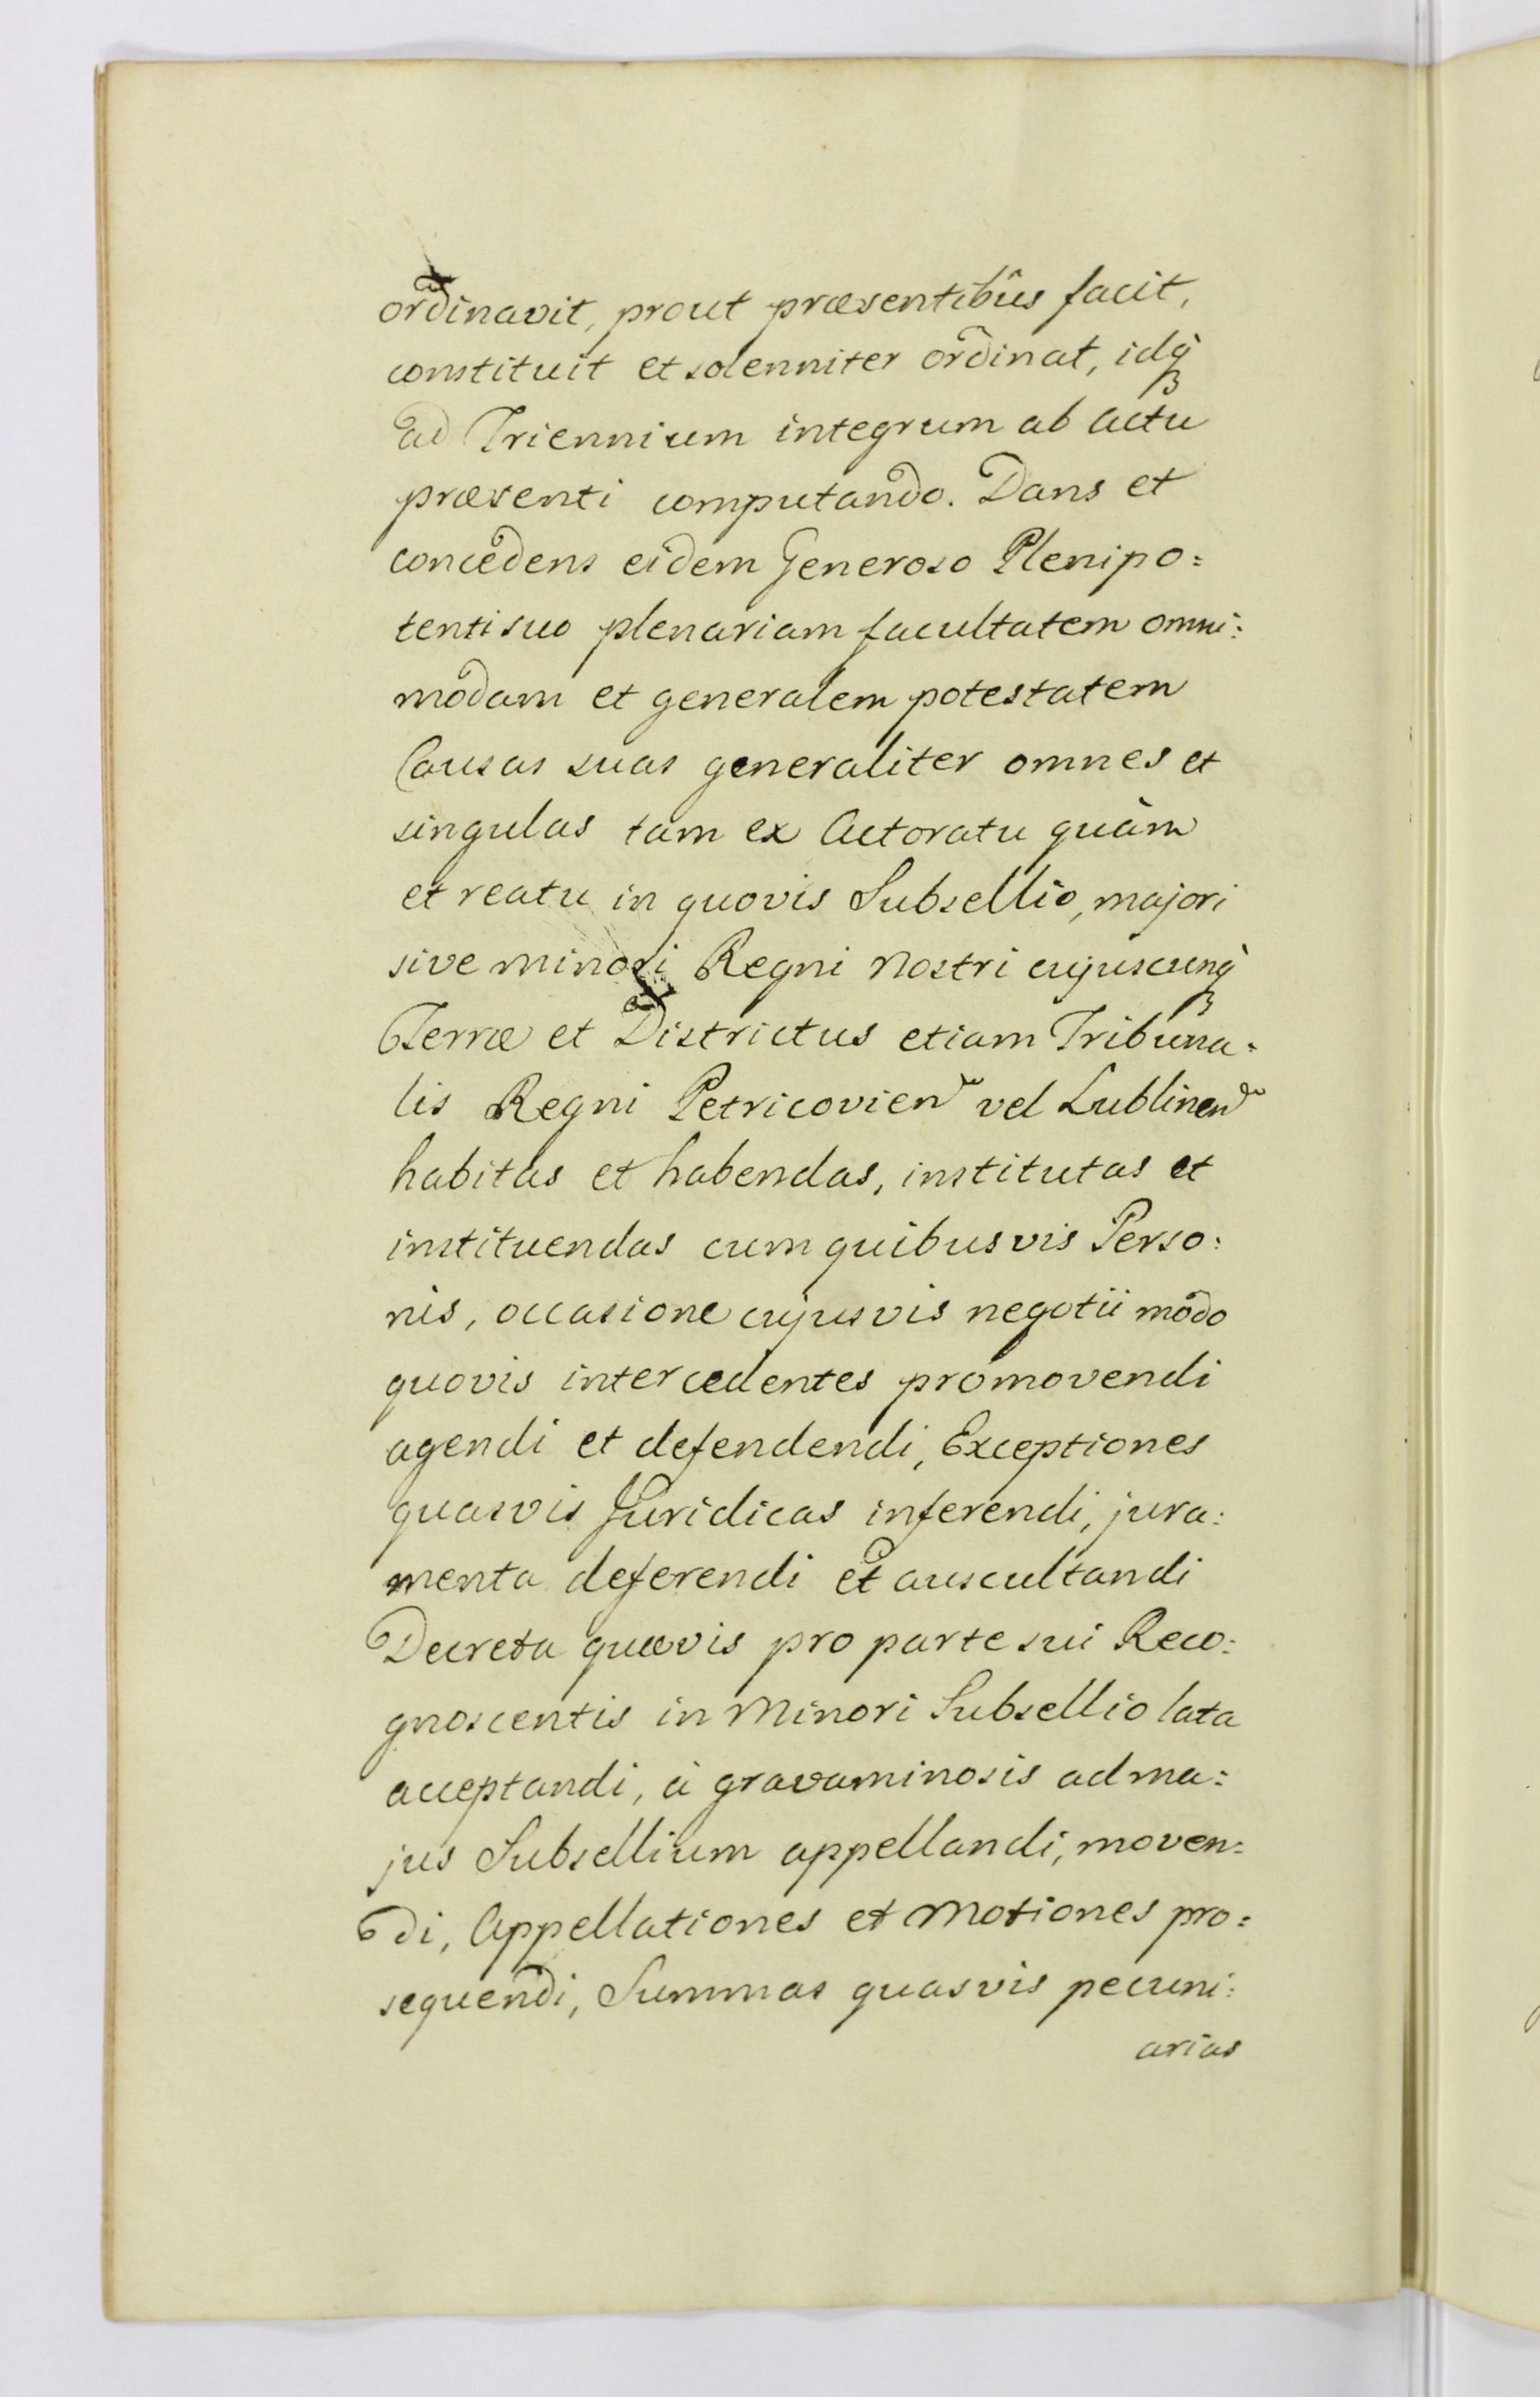 ordinavit, prout præsentibus facit,
constituit et solenniter ordinat, idq́ꝫ
ad Triennium integrum ab actu
præsenti computando. Dans et
concedens eidem Generoso Plenipo=
tenti suo plenariam facultatem omni:
modam et generalem potestatem
Causas suas generaliter omnes et
singulas tam ex Actoratu quàm
et reatu in quovis Subsellio, majori
sive minori Regni Nostri cujuscunq́ꝫ
Terræ et Districtus etiam Tribuna=
lis Regni Petricovien vel Lublinen
habitas et habendas, institutas et
instituendas cum quibusvis Perso:
nis, occasione cujusvis negotii modo
quovis intercedentes promovendi
agendi et defendendi, Exceptiones
quasvis Juridicas inferendi, jura:
menta deferendi et auscultandi
Decreta quævis pro parte sui Reco:
gnoscentis in Minori Subsellio lata
acceptandi, à gravaminosis ad ma=
jus Subsellium appellandi, moven=
di, Appellationes et Motiones pro=
sequendi, Summas quasvis pecuni:
arias